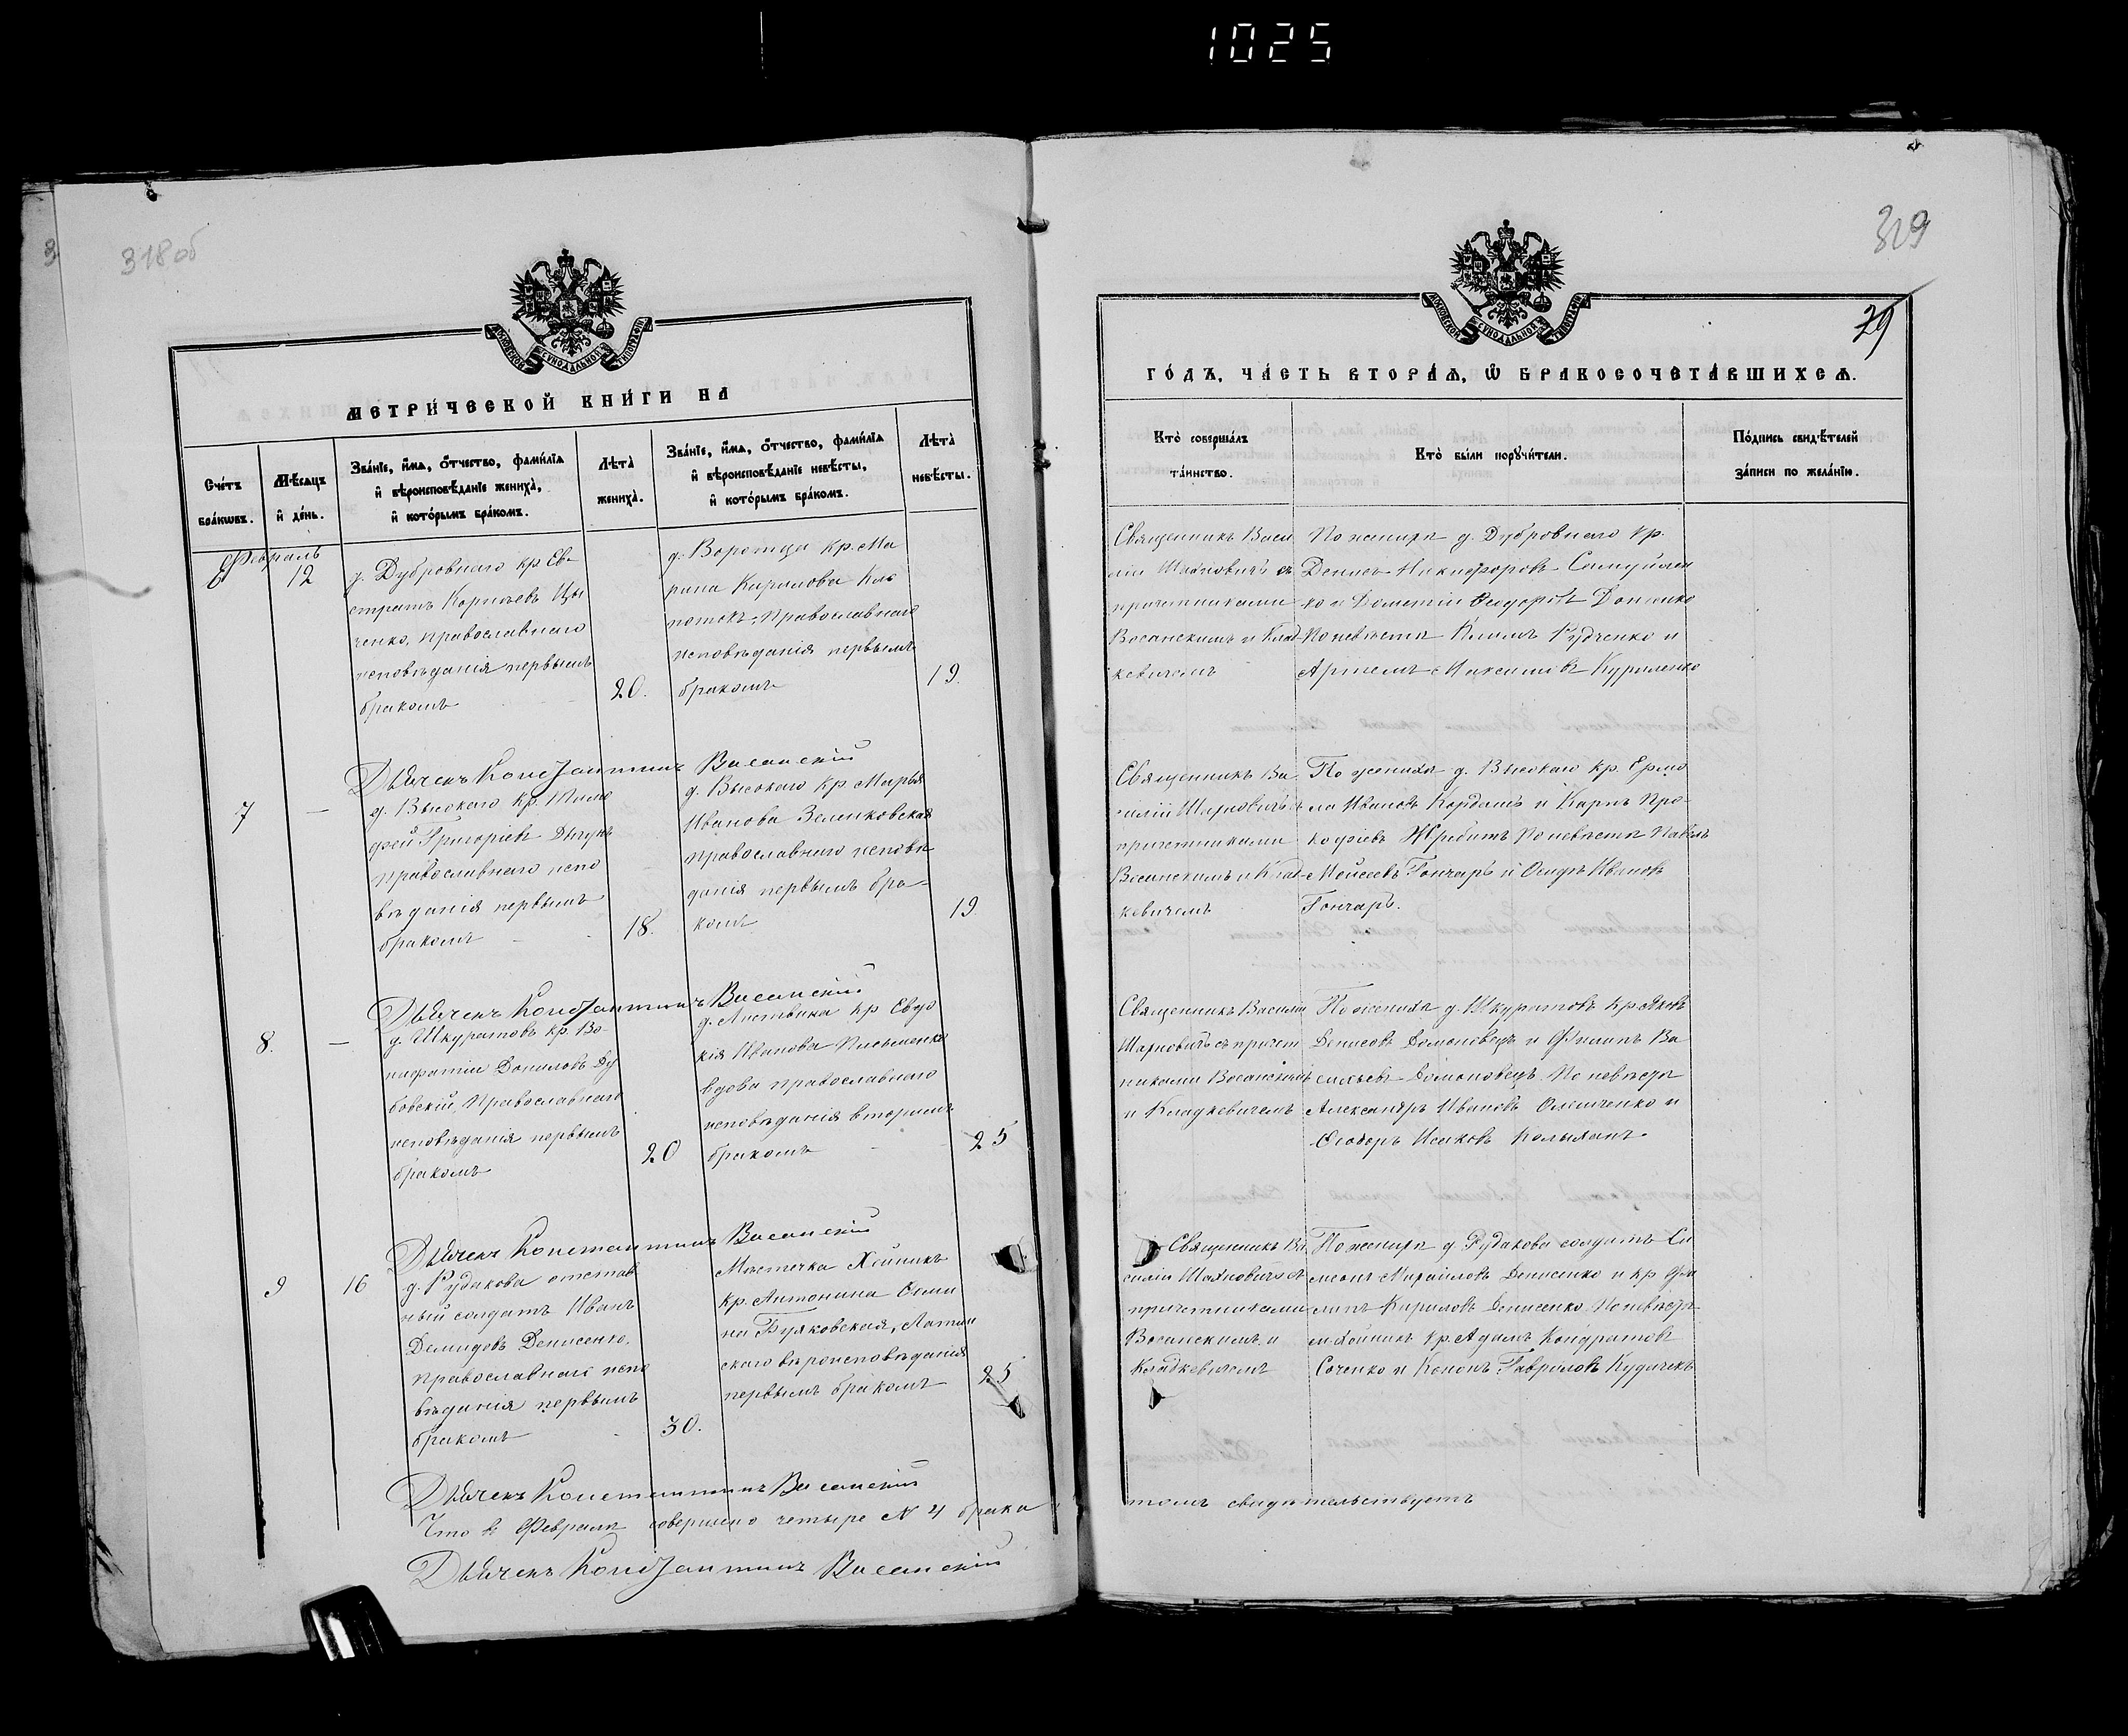 1025
318об
319
79
МОСКОВСКОЙ СѴНОДАЛЬНОЙ ТИПОГРАФІИ
МЕТРИ́ЧЕСКОЙ КНИ́ГИ НА
Сче́тъ бра́кѡвъ.
Мѣ́сѧцъ и҆ де́нь.
Зва́нїе, и҆́мѧ, ѻ҆́тчество, фами́лїѧ
и҆ вѣроисповѣ́данїе жениха̀,
и҆ кото́рымъ бра́комъ.
Лѣта̀ жениха̀.
Зва́нїе, и҆́мѧ, ѻ҆́тчество, фами́лїѧ
и҆ вѣроисповѣ́данїе невѣ́сты,
и҆ кото́рымъ бра́комъ.
Лѣта̀ невѣ́сты.
Февраль
6 12
д. Дубровнаго кр. Ев-
стратъ Корнѣевъ Цы
ченко, православнаго
исповѣданія первымъ
бракомъ
20.
д. Воротца кр. Ма
рина Кирилова
православнаго
исповѣданія первымъ
бракомъ
19.
Дьячекъ Константинъ Васанскій
7 —
д. Высокаго кр. Тимо
фей Григоріевъ
православнаго испо
вѣданія первымъ
бракомъ
18.
д. Высокаго кр. Марья
Иванова Зеленковская
православнаго исповѣ
данія первымъ бра-
комъ
19
Дьячекъ Константинъ Васанскій
8. —
д. Шкуратовъ кр. Во-
нифатій Даниловъ Ду
бовскій, православнаго
исповѣданія первымъ
бракомъ
20
д. Листвина кр. Евдо
кія Иванова Письменко
вдова православнаго
исповѣданія вторымъ
бракомъ
25
Дьячекъ Константинъ Васанскій
9 16
д. Рудакова отстав
ный солдатъ Иванъ
Демидовъ Денисенко,
православнаго испо
вѣданія первымъ
бракомъ
30.
Мѣстечка Хойникъ
кр. Антонина Осипо
на Буяковская, Латин
скаго вѣроисповѣданія
первымъ бракомъ
25
Дьячекъ Константинъ Васанскій
Что въ Февралѣ совершено четыре N 4 брака
Дьячекъ Константинъ Васанскій
МОСКОВСКОЙ СѴНОДАЛЬНОЙ ТИПОГРАФІИ
ГО́ДЪ, ЧА́СТЬ ВТОРА́Ѧ, Ѡ҆ БРАКОСОЧЕТА́ВШИХСѦ.
Кто̀ соверша́лъ
та́инство.
Кто̀ бы́ли порꙋчи́тели.
По́дпись свидѣ́телей
за́писи по жела́нїю.
Священникъ Васи
лій Шахновичъ съ
причетниками
Васанскимъ и Клад
кевичемъ
По женихѣ д. Дубровнаго кр.
Денисъ Никифоровъ Самуйлен
ко и Дометій Ѳеодоровъ Доценко
По невѣстѣ Климъ Рудченко и
Артемъ Максимовъ Куриленко
Священникъ Ва
силій Шахновичъ съ
причетниками
Васанскимъ и Клад-
кевичемъ
По женихѣ д. Высокаго кр. Ермо
ла Ивановъ Кордашъ и Карпъ Про-
кофіевъ Жребитъ По невѣстѣ Павелъ
Мойсеевъ Гончаръ и Осипъ Ивановъ
Гончаръ.
Священникъ Василій
Шахновичъ съ причет
никами Васанскимъ
и Кладкевичемъ
По женихѣ д. Шкуратовъ кр. Яковъ
Денисовъ Домоновецъ и Филипъ Ва
сильевъ Домоновецъ. По невѣстѣ
Александръ Ивановъ Олешченко и
Ѳеодоръ Исаковъ Колыханъ
Священникъ Ва
силій Шахновичъ съ
причетниками
Васанскимъ и
Кладкевичемъ
По женихѣ д. Рудакова солдатъ Си
меонъ Михайловъ Денисенко и кр. Фи
липъ Кириловъ Денисенко По невѣстѣ
м. Хойникъ кр. Адамъ Кондратовъ
Соченко и Кононъ Гавриловъ Кудачекъ
томъ свидѣтельствуетъ